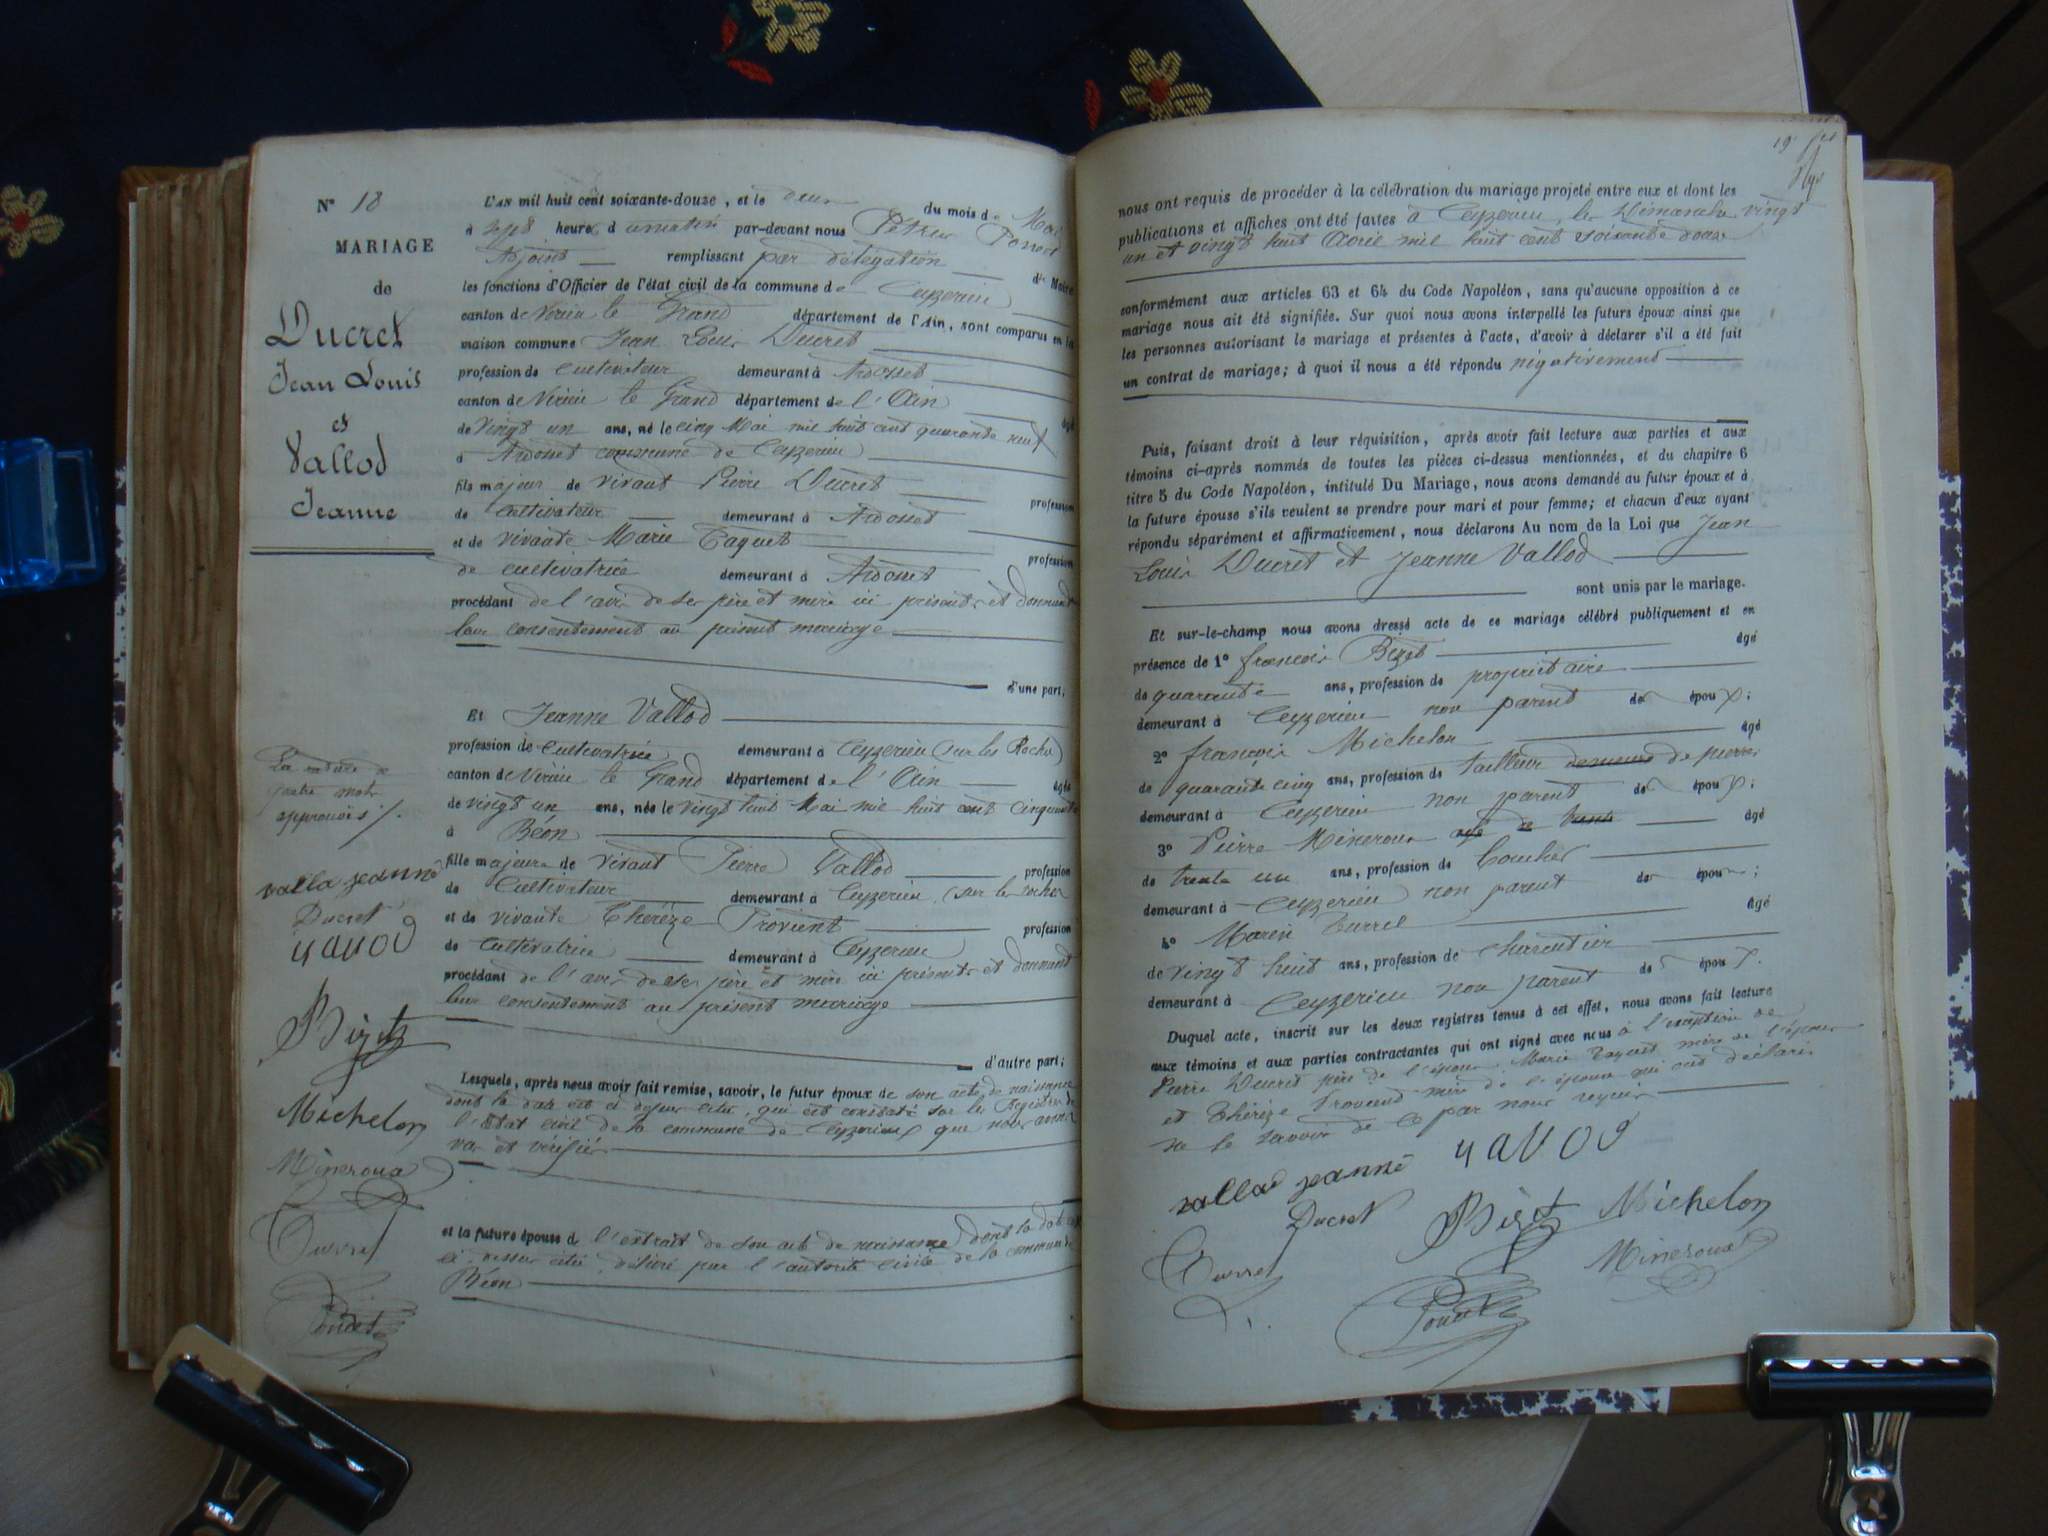 N° 18
MARIAGE
de
Ducret
Jean Louis
et
Vallod
Jeanne
L'AN mil huit cent soixante-douze, et le deux du mois de Mai
à sept heures d u matin par-devant nous Pétrus
Adjoint remplissant par délégation de Maire
les fonctions d'Officier de l'état civil de la commune de Ceyzerieu
canton de Virieu le Grand département de l'Ain, sont comparus en la
maison commune Jean Louis Ducret
profession de cultivateur demeurant à Ardosset
canton de Virieu le Grand département de l'Ain âgé
de vingt un ans, né le cinq Mai mil huit cent quarante
à Ardosset commune de Ceyzerieu
fils majeur de vivant Pierre Ducret profession
de Cultivateur demeurant à Ardosset
et de vivante Marie Taquet profession
de cultivatrice demeurant à Ardosset
procédant de l'avis de ses père et mère ici présents et donnant
leur consentement au présent mariage
d'une part;
Et Jeanne Vallod
profession de Cultivatrice demeurant à Ceyzerieu (sur les Roches)
canton de Virieu le Grand département de l'Ain âgée
de vingt un ans, née le vingt huit Mai mil huit cent cinquante
à Béon
fille majeure de vivant Pierre Vallod profession
de Cultivateur demeurant à Ceyzerieu (sur les roches
et de vivante Thérèze Provent profession
de Cultivatrice demeurant à Ceyzerieu
procédant de l'avis de ses père et mère ici présents et donnant
leur consentement au présent mariage
d'autre part;
Lesquels, après nous avoir fait remise, savoir, le futur époux de son acte de naissance
dont la date est ci dessus citée, qui est constaté sur les Registres de
l'Etat civil de la commune de Ceyzerieu que nous avons
vu et vérifié
et la future épouse de l'extrait de son acte de naissance dont la date est
ci dessus citée, délivré par l'autorité civile de la commune
Béon
La rature de
quatre mots
approuvés /.
valla jeanne
Ducret
vallod
Bizet
Michelon
Mineroux
Turrel
19
nous ont requis de procéder à la célébration du mariage projeté entre eux et dont les
publications et affiches ont été faites à Ceyzerieu, les Dimanches vingt
un et vingt huit Avril mil huit cent soixante douze
conformément aux articles 63 et 64 du Code Napoléon, sans qu'aucune opposition à ce
mariage nous ait été signifiée. Sur quoi nous avons interpellé les futurs époux ainsi que
les personnes autorisant le mariage et présentes à l'acte, d'avoir à déclarer s'il a été fait
un contrat de mariage; à quoi il nous a été répondu négativement
Puis, faisant droit à leur réquisition, après avoir fait lecture aux parties et aux
témoins ci-après nommés de toutes les pièces ci-dessus mentionnées, et du chapitre 6
titre 5 du Code Napoléon, intitulé Du Mariage, nous avons demandé au futur époux et à
la future épouse s'ils veulent se prendre pour mari et pour femme; et chacun d'eux ayant
répondu séparément et affirmativement, nous déclarons Au nom de la Loi que Jean
Louis Ducret et Jeanne Vallod
sont unis par le mariage.
Et sur-le-champ nous avons dressé acte de ce mariage célébré publiquement et en
présence de 1° françois Bizet âgé
de quarante ans, profession de propriétaire
demeurant à Ceyzerieu non parent des époux;
2° françois Michelon âgé
de quarante cinq ans, profession de tailleur de pierres
demeurant à Ceyzerieu non parent des époux;
3° Pierre Mineroux agé de âgé
de trente un ans, profession de boucher
demeurant à Ceyzerieu non parent des époux;
4° Marin Turrel âgé
de vingt huit ans, profession de charpentier
demeurant à Ceyzerieu non parent des époux.
Duquel acte, inscrit sur les deux registres tenus à cet effet, nous avons fait lecture
aux témoins et aux parties contractantes qui ont signé avec nous à l'exception de
Pierre Ducret père de l'époux, Marie Taquet mère de l'époux
et Thérèze Provend mère de l'épouse qui ont déclaré
ne le savoir de ce par nous requis
vallod jeanne vallod
Ducret Bizet Michelon
Turrel Mineroux